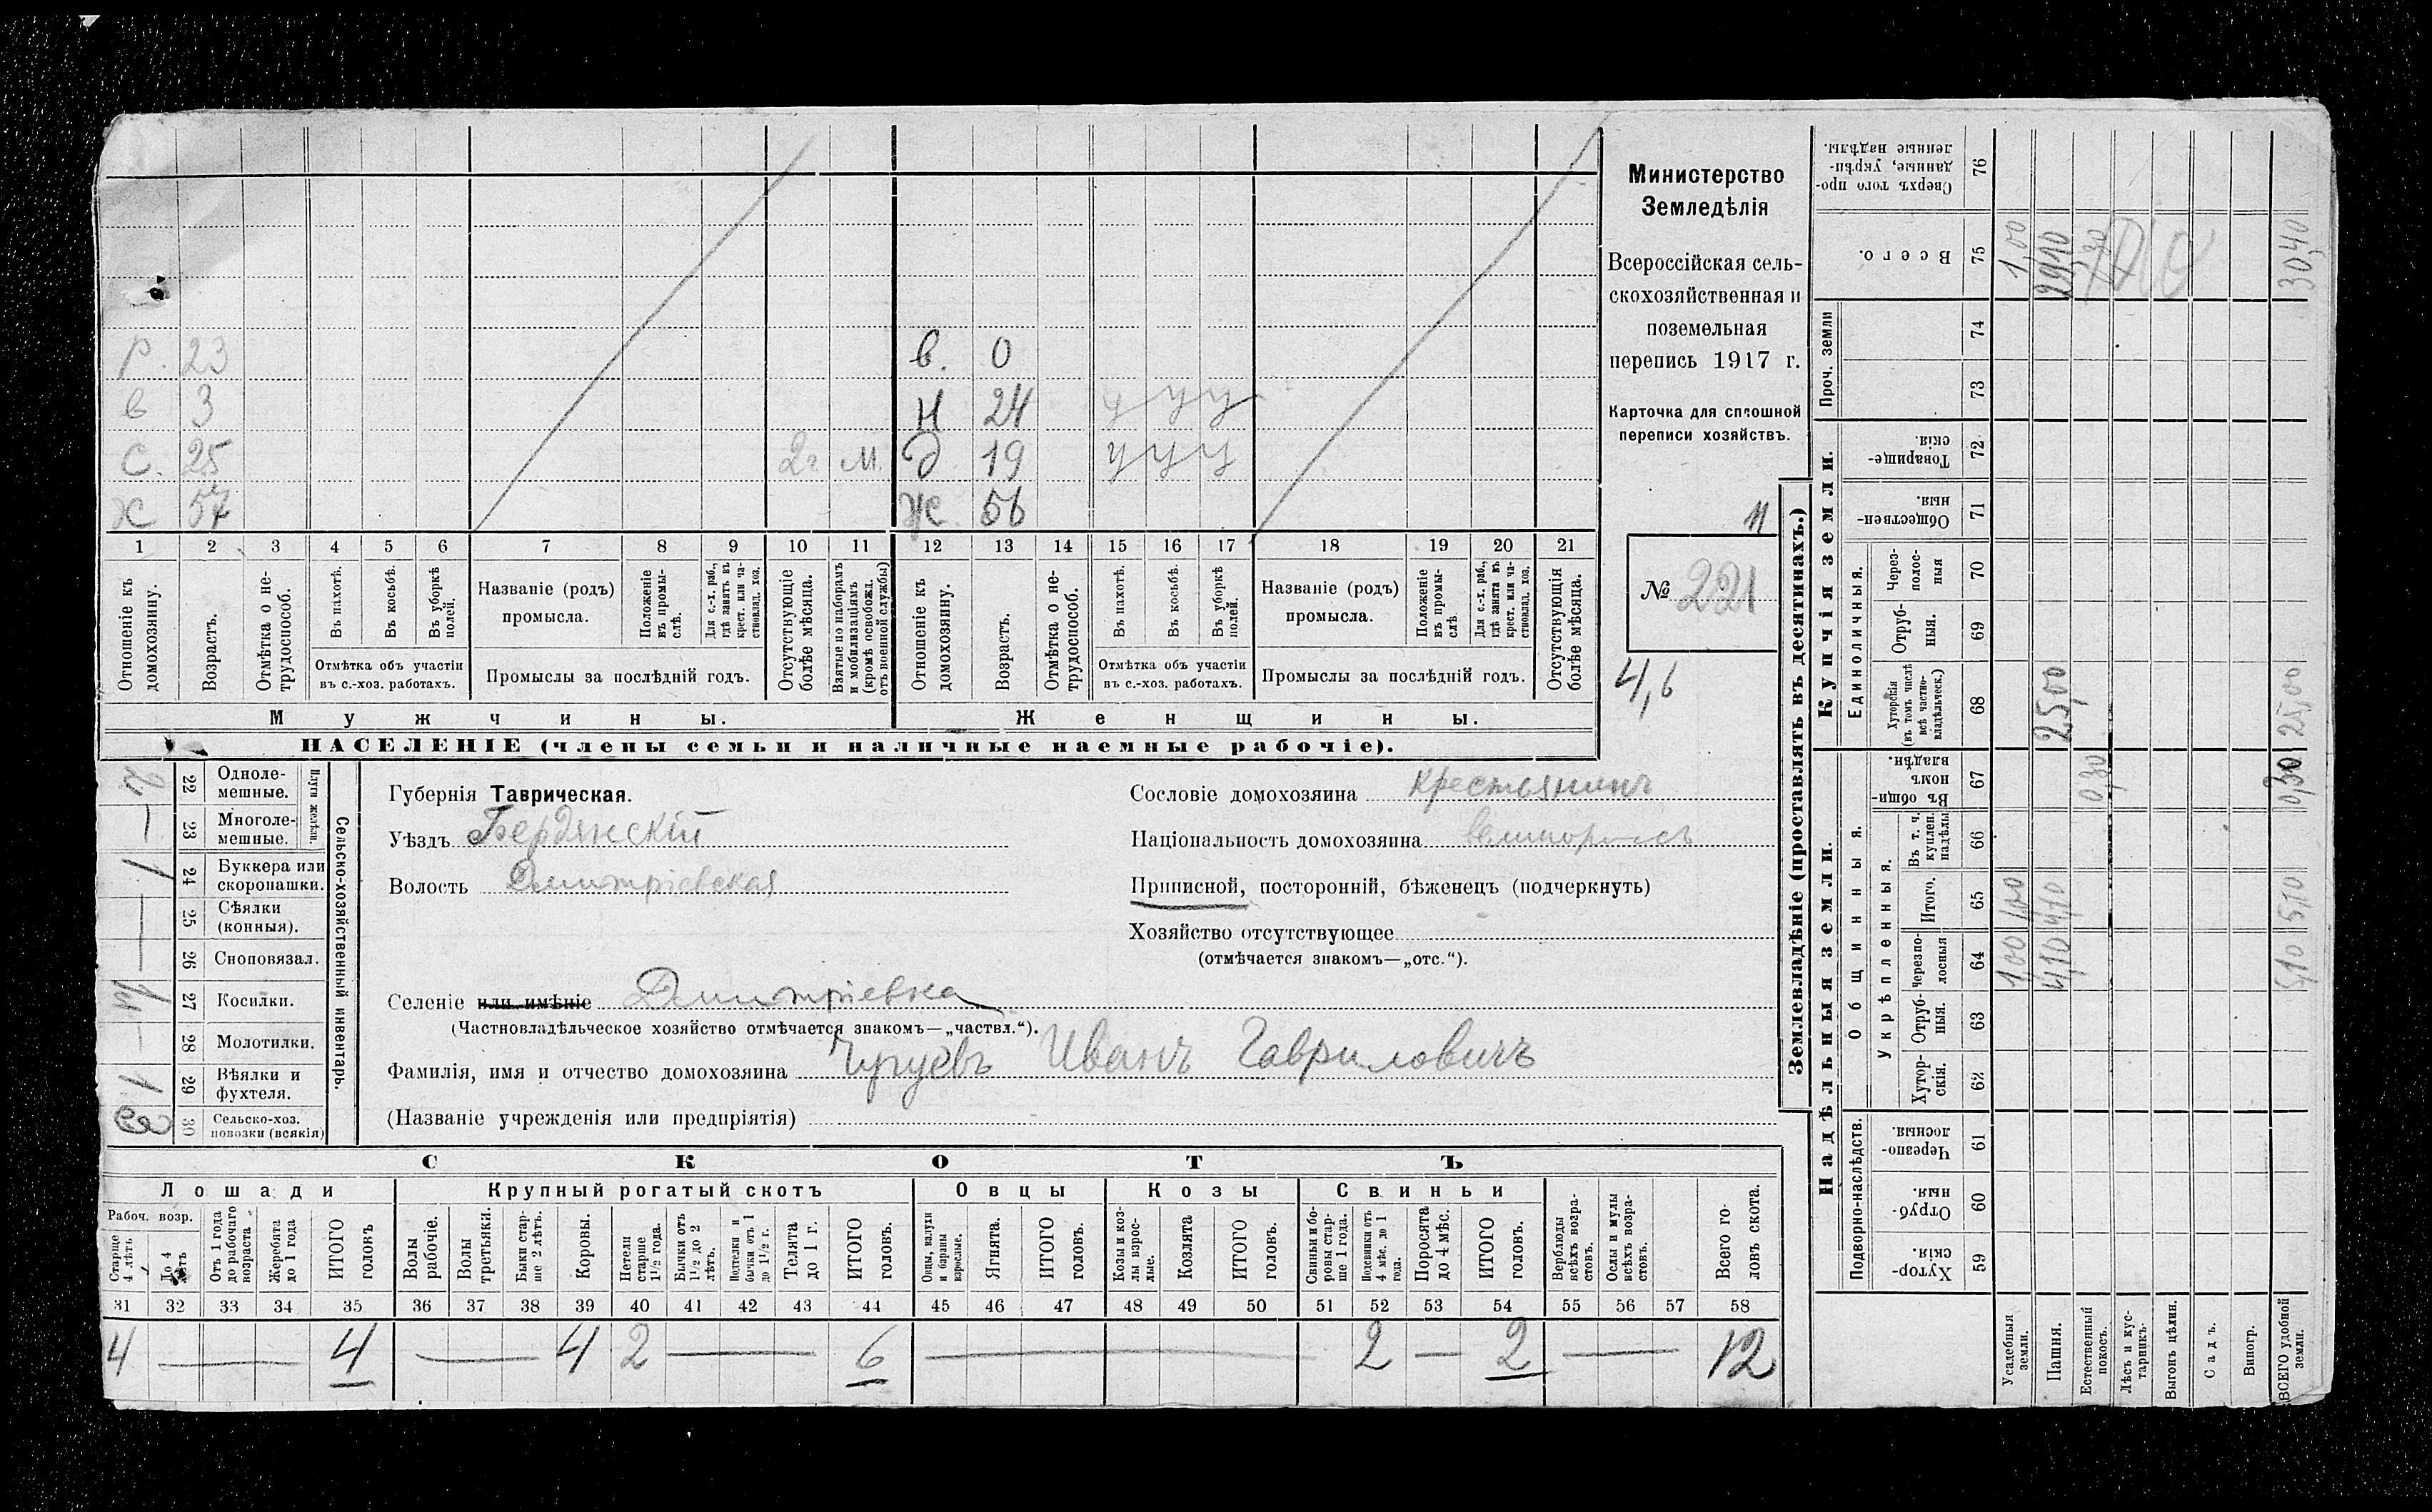 Министерство
Земледѣлія
Всероссійская сель-
скохозяйственная и
поземельная
перепись 1917 г.
Карточка для сплошной
переписи хозяйствъ.
11
№ 221
4,6
Р. 23
в 3
С. 25 2г. м.
Ж 57
в. 0
Н 24 у у у
Д 19 у у у
Ж 56
1 2 3 4 5 6 7 8 9 10 11 12 13 14 15 16 17 18 19 20 21
Отношеніе къ домохозяину.
Возрастъ.
Отмѣтка о не-трудоспособ.
Въ пахотѣ.
Въ косьбѣ.
Въ уборкѣ полей.
Отмѣтка объ участіи
въ с.-хоз. работахъ.
Названіе (родъ)
промысла.
Положеніе въ промы-слѣ.
Для с.-х. раб., гдѣ занятъ въ крест. или ча-стновлад. хоз.
Промыслы за послѣдній годъ.
Отсутствующіе болѣе мѣсяца.
Взятые по наборамъ и мобилизаціямъ (кромѣ освобожд. отъ военной службы)
Отношеніе къ домохозяину.
Возрастъ.
Отмѣтка о не-трудоспособ.
Въ пахотѣ.
Въ косьбѣ.
Въ уборкѣ полей.
Отмѣтка объ участіи
въ с.-хоз. работахъ.
Названіе (родъ)
промысла.
Положеніе въ промы-слѣ
Для с.-х. раб., гдѣ занята въ крест. или ча-стновлад. хоз.
Промыслы за послѣдній годъ.
Отсутствующія болѣе мѣсяца.
Мужчины. Женщины.
НАСЕЛЕНІЕ (члены семьи и наличные наемные рабочіе).
Сельско-хозяйственный инвентарь.
Плуги желѣзн.
22 Одноле-мешные. 2
23 Многоле-мешные. —
24 Буккера или скоропашки. 1
25 Сѣялки (конныя). —
26 Сноповязал. —
27 Косилки.
28 Молотилки. —
29 Вѣялки и фухтеля. 1
30 Сельско-хоз. повозки (всякія)
Губернія Таврическая.
Уѣздъ Бердянскій
Волость Дмитріевская
Сословіе домохозяина крестьянинъ
Національность домохозяина великороссъ
Приписной, посторонній, бѣженецъ (подчеркнуть)
Хозяйство отсутствующее
(отмѣчается знакомъ—„отс.“).
Селеніе или имѣніе Дмитріевка
(Частновладѣльческое хозяйство отмѣчается знакомъ—„частвл.“).
Фамилія, имя и отчество домохозяина Чугуевъ Иванъ Гавриловичъ
(Названіе учрежденія или предпріятія)
СКОТЪ
Лошади Крупный рогатый скотъ Овцы Козы Свиньи
Рабоч. возр.
Старше 4 лѣтъ
До 4 лѣтъ
Отъ 1 года до рабочаго возраста
Жеребята до 1 года
ИТОГО головъ
Волы рабочіе.
Волы третьяки.
Быки стар-ше 2 лѣтъ.
Коровы.
Нетели старше 1½ года.
Бычки отъ 1½ до 2 лѣтъ.
Подтелки и бычки отъ 1 до 1½ г.
Телята до 1 г.
ИТОГО головъ.
Овцы, валухи и бараны взрослые.
Ягнята.
ИТОГО головъ.
Козы и коз-лы взрос-лые.
Козлята
ИТОГО головъ.
Свиньи и бо-ровы стар-ше 1 года.
Подсвинки отъ 4 мѣс. до 1 года.
Поросята до 4 мѣс.
ИТОГО головъ.
Верблюды всѣхъ возра-стовъ.
Ослы и мулы всѣхъ возра-стовъ.
Всего го-ловъ скота.
31 32 33 34 35 36 37 38 39 40 41 42 43 44 45 46 47 48 49 50 51 52 53 54 55 56 57 58
4 — 4 — 4 2 — 6 — 2 — 2 — 12
Землевладѣніе (проставлять въ десятинахъ.)
Надѣльныя земли. Купчія земли. Проч. земли
Подворно-наслѣдств.
Общинныя.
Укрѣпленныя.
Единоличныя.
59 Хутор-скія.
60 Отруб-ныя.
61 Черезпо-лосныя.
62 Хутор-скія.
63 Отруб-ныя.
64 Черезпо-лосныя
65 Итого.
66 Въ т. ч. куплен. надѣлы
67 Въ общин-номъ владѣн.
68 Хуторскія (въ томъ числѣ всѣ частно-владѣльческ.)
69 Отруб-ныя.
70 Через-полос-ныя
71 Обществен-ныя.
72 Товарище-скія.
73
74
75 Всего.
76 Сверхъ того про-данные, укрѣп-ленные надѣлы.
Усадебныя земли. 1,00 1,00 1,00
Пашня. 4,10 4,10 25,00 29,10
Естественный покосъ. 0,30 0,30
Лѣсъ и кус-тарникъ.
Выгонъ цѣлин.
Садъ.
Виногр.
ВСЕГО удобной земли. 5,10 5,10 0,30 25,00 30,40